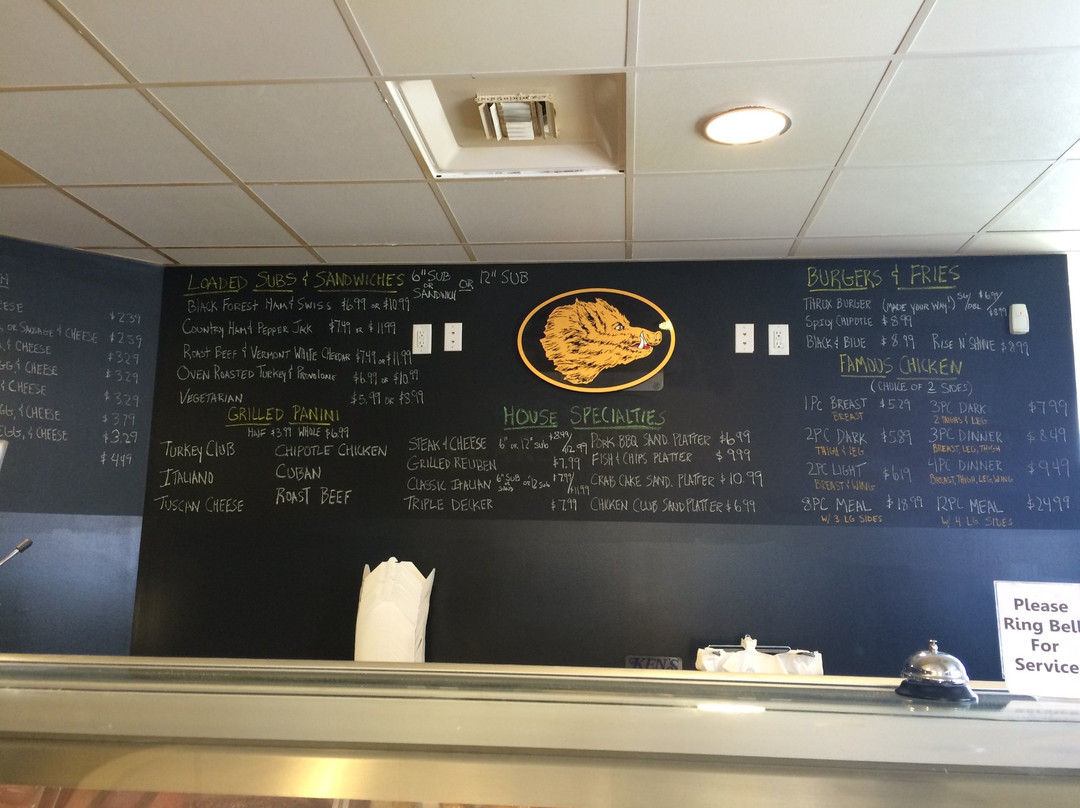 EESE $2.39
OR SAUSAGE & CHEESE $2.59
& CHEESE $3.29
EGG, & CHEESE $3.29
& CHEESE $3.29
EGG, & CHEESE $3.79
EGG, & CHEESE $3.29
$4.49
LOADED SUBS & SANDWICHES 6" SUB OR SANDWICH OR 12" SUB
BLACK FOREST HAM & SWISS $6.99 OR $10.99
COUNTRY HAM & PEPPER JACK $7.99 OR $11.99
ROAST BEEF & VERMONT WHITE CHEDDAR $7.49 OR $11.99
OVEN ROASTED TURKEY & PROVOLONE $6.99 OR $10.99
VEGETARIAN $5.99 OR $8.99
GRILLED PANINI
HALF $3.99 WHOLE $6.99
TURKEY CLUB CHIPOTLE CHICKEN
ITALIANO CUBAN
TUSCAN CHEESE ROAST BEEF
HOUSE SPECIALTIES
STEAK & CHEESE 6" OR 12" SUB $8.49/12.99
GRILLED REUBEN $7.99
CLASSIC ITALIAN 6" SUB OR SAND OR 12 SUB $7.99/$11.99
TRIPLE DECKER $7.99
PORK BBQ SAND. PLATTER $6.99
FISH & CHIPS PLATTER $9.99
CRAB CAKE SAND. PLATTER $10.99
CHICKEN CLUB SAND PLATTER $6.99
BURGERS & FRIES
(MADE YOUR WAY!) $6.99 $8.99
SPICY CHIPOTLE $8.99
BLACK & BLUE $8.99 RISE N SHINE $8.99
FAMOUS CHICKEN
(CHOICE OF 2 SIDES)
1PC BREAST $5.29
BREAST
2PC DARK $5.89
THIGH & LEG
2PC LIGHT $6.19
BREAST & WING
8PC MEAL $18.99
W/ 3 LG SIDES
3PC DARK $7.99
2 THIGHS & LEG
3PC DINNER $8.49
BREAST, LEG, THIGH
4PC DINNER $9.49
BREAST, THIGH, LEG, WING
12PC MEAL $24.99
W/ 4 LG SIDES
KEN'S
Please
Ring Bell
For
Service